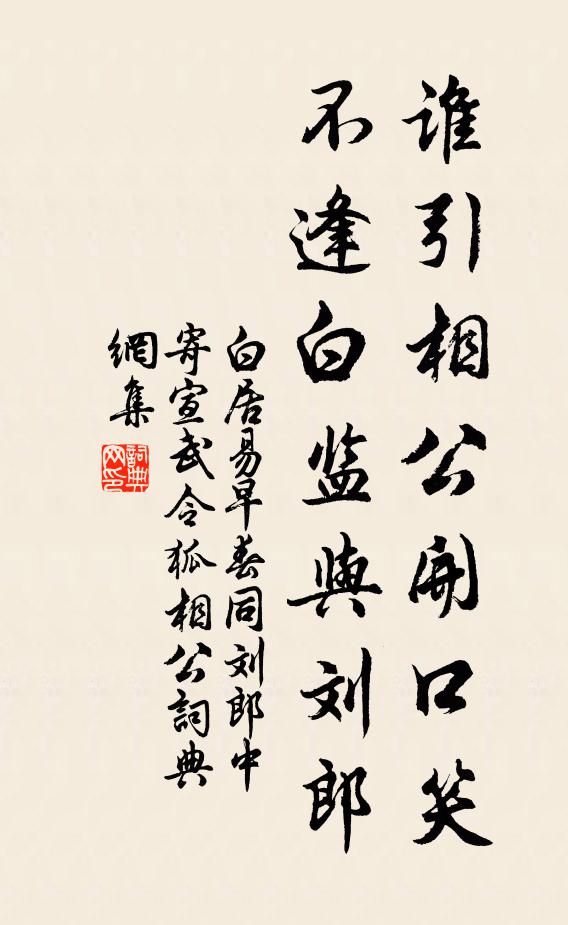 谁引相公開口笑
不逢白监與刘郎
白居易早春同刘郎中
寄宣武令狐相公詞典
網集
詞典
网印